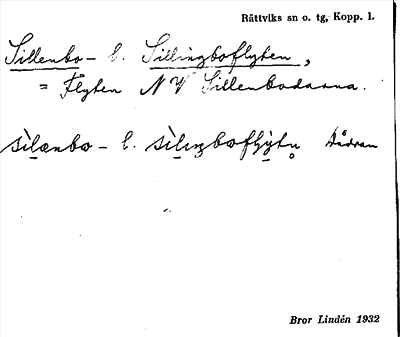 Rättviks sn o. tg, Kopp. l.
Sillenbo- l. Sillingboflyten,
= Flyten N V Sillenbodarna.
sìlænbω- l. sìlıŋbωflỳtn̥ Dådran
Bror Lindén 1932